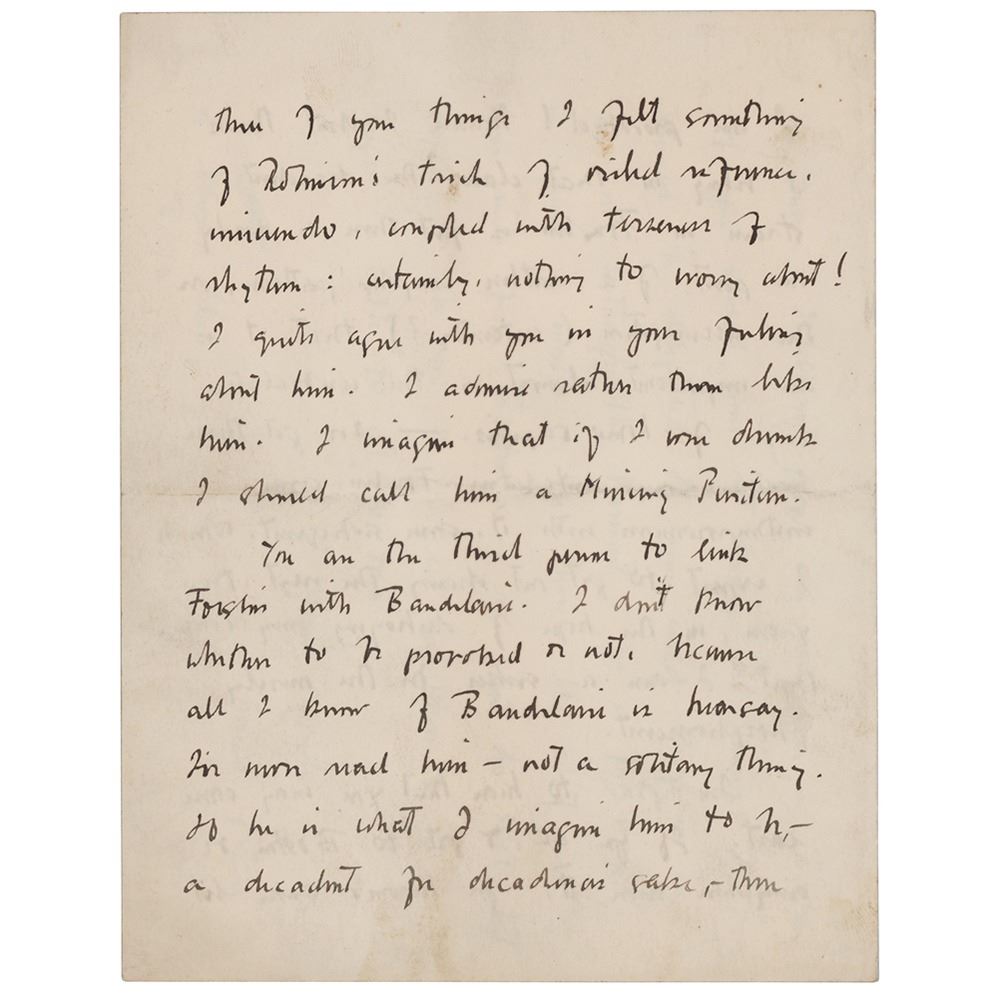 three of your things I felt something
of Robinson's trick of veiled reference,
innuendo, coupled with terseness of
rhythm: certainly, nothing to worry about!
I quite agree with you in your feeling
about him. I admire rather than like
him. I imagine that if I were drunk
I should call him a Mining Puritan.
You are the third person to link
with Baudelaire. I don't know
whether to be provoked or not, because
all I know of Baudelaire is hearsay.
I've never read him – not a solitary thing.
If he is what I imagine him to be, –
a decadent for decadence's sake, – then